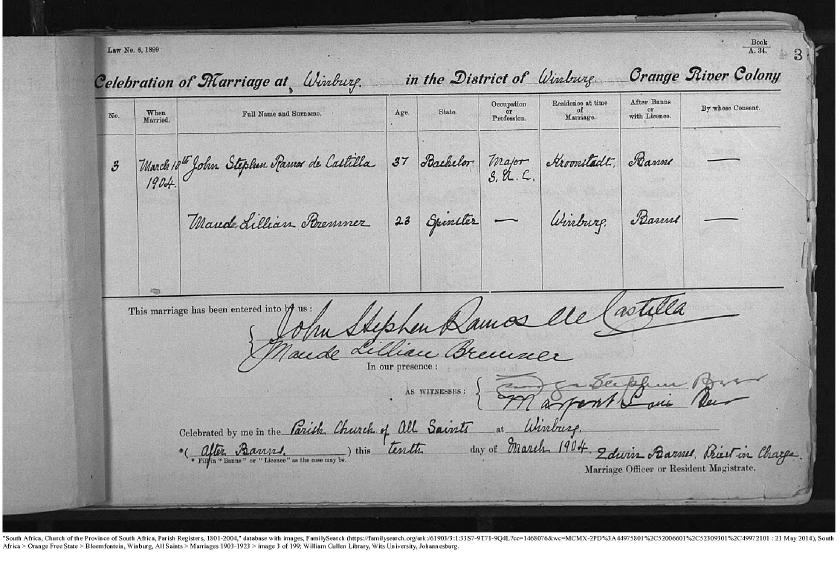 Law No. 6, 1899
Book
A. 34.
3
Celebration of Marriage at Winburg. in the District of Winburg Orange River Colony
No. When Married. Full Name and Surname. Age. State. Occupation or Profession. Residence at time of Marriage. After Banns or with Licence. By whose Consent.
3 March 10th 1904. John Stephen Ramos de Castilla 37 Bachelor Major S.A.C. Kroonstadt. Banns —
Maude Lillian Bremner 23 Spinster — Winburg. Banns —
This marriage has been entered into by us :
John Stephen Ramos de Castilla
Maude Lillian Bremner
In our presence :
AS WITNESSES :
Stephen
Margaret
Celebrated by me in the Parish Church of All Saints at Winburg.
*( After Banns. ) this tenth day of March 1904. Edwin Barnes, Priest in Charge.
* Fill in "Banns" or "Licence" as the case may be.
Marriage Officer or Resident Magistrate.
"South Africa, Church of the Province of South Africa, Parish Registers, 1801-2004," database with images, FamilySearch (https://familysearch.org/ark:/61903/3:1:33S7-9T71-9Q4L?cc=1468076&wc=MCMX-2PD%3A44975801%2C52006601%2C52309301%2C49972101 : 21 May 2014), South
Africa > Orange Free State > Bloemfontein, Winburg, All Saints > Marriages 1903-1923 > image 3 of 199; William Cullen Library, Wits University, Johannesburg.